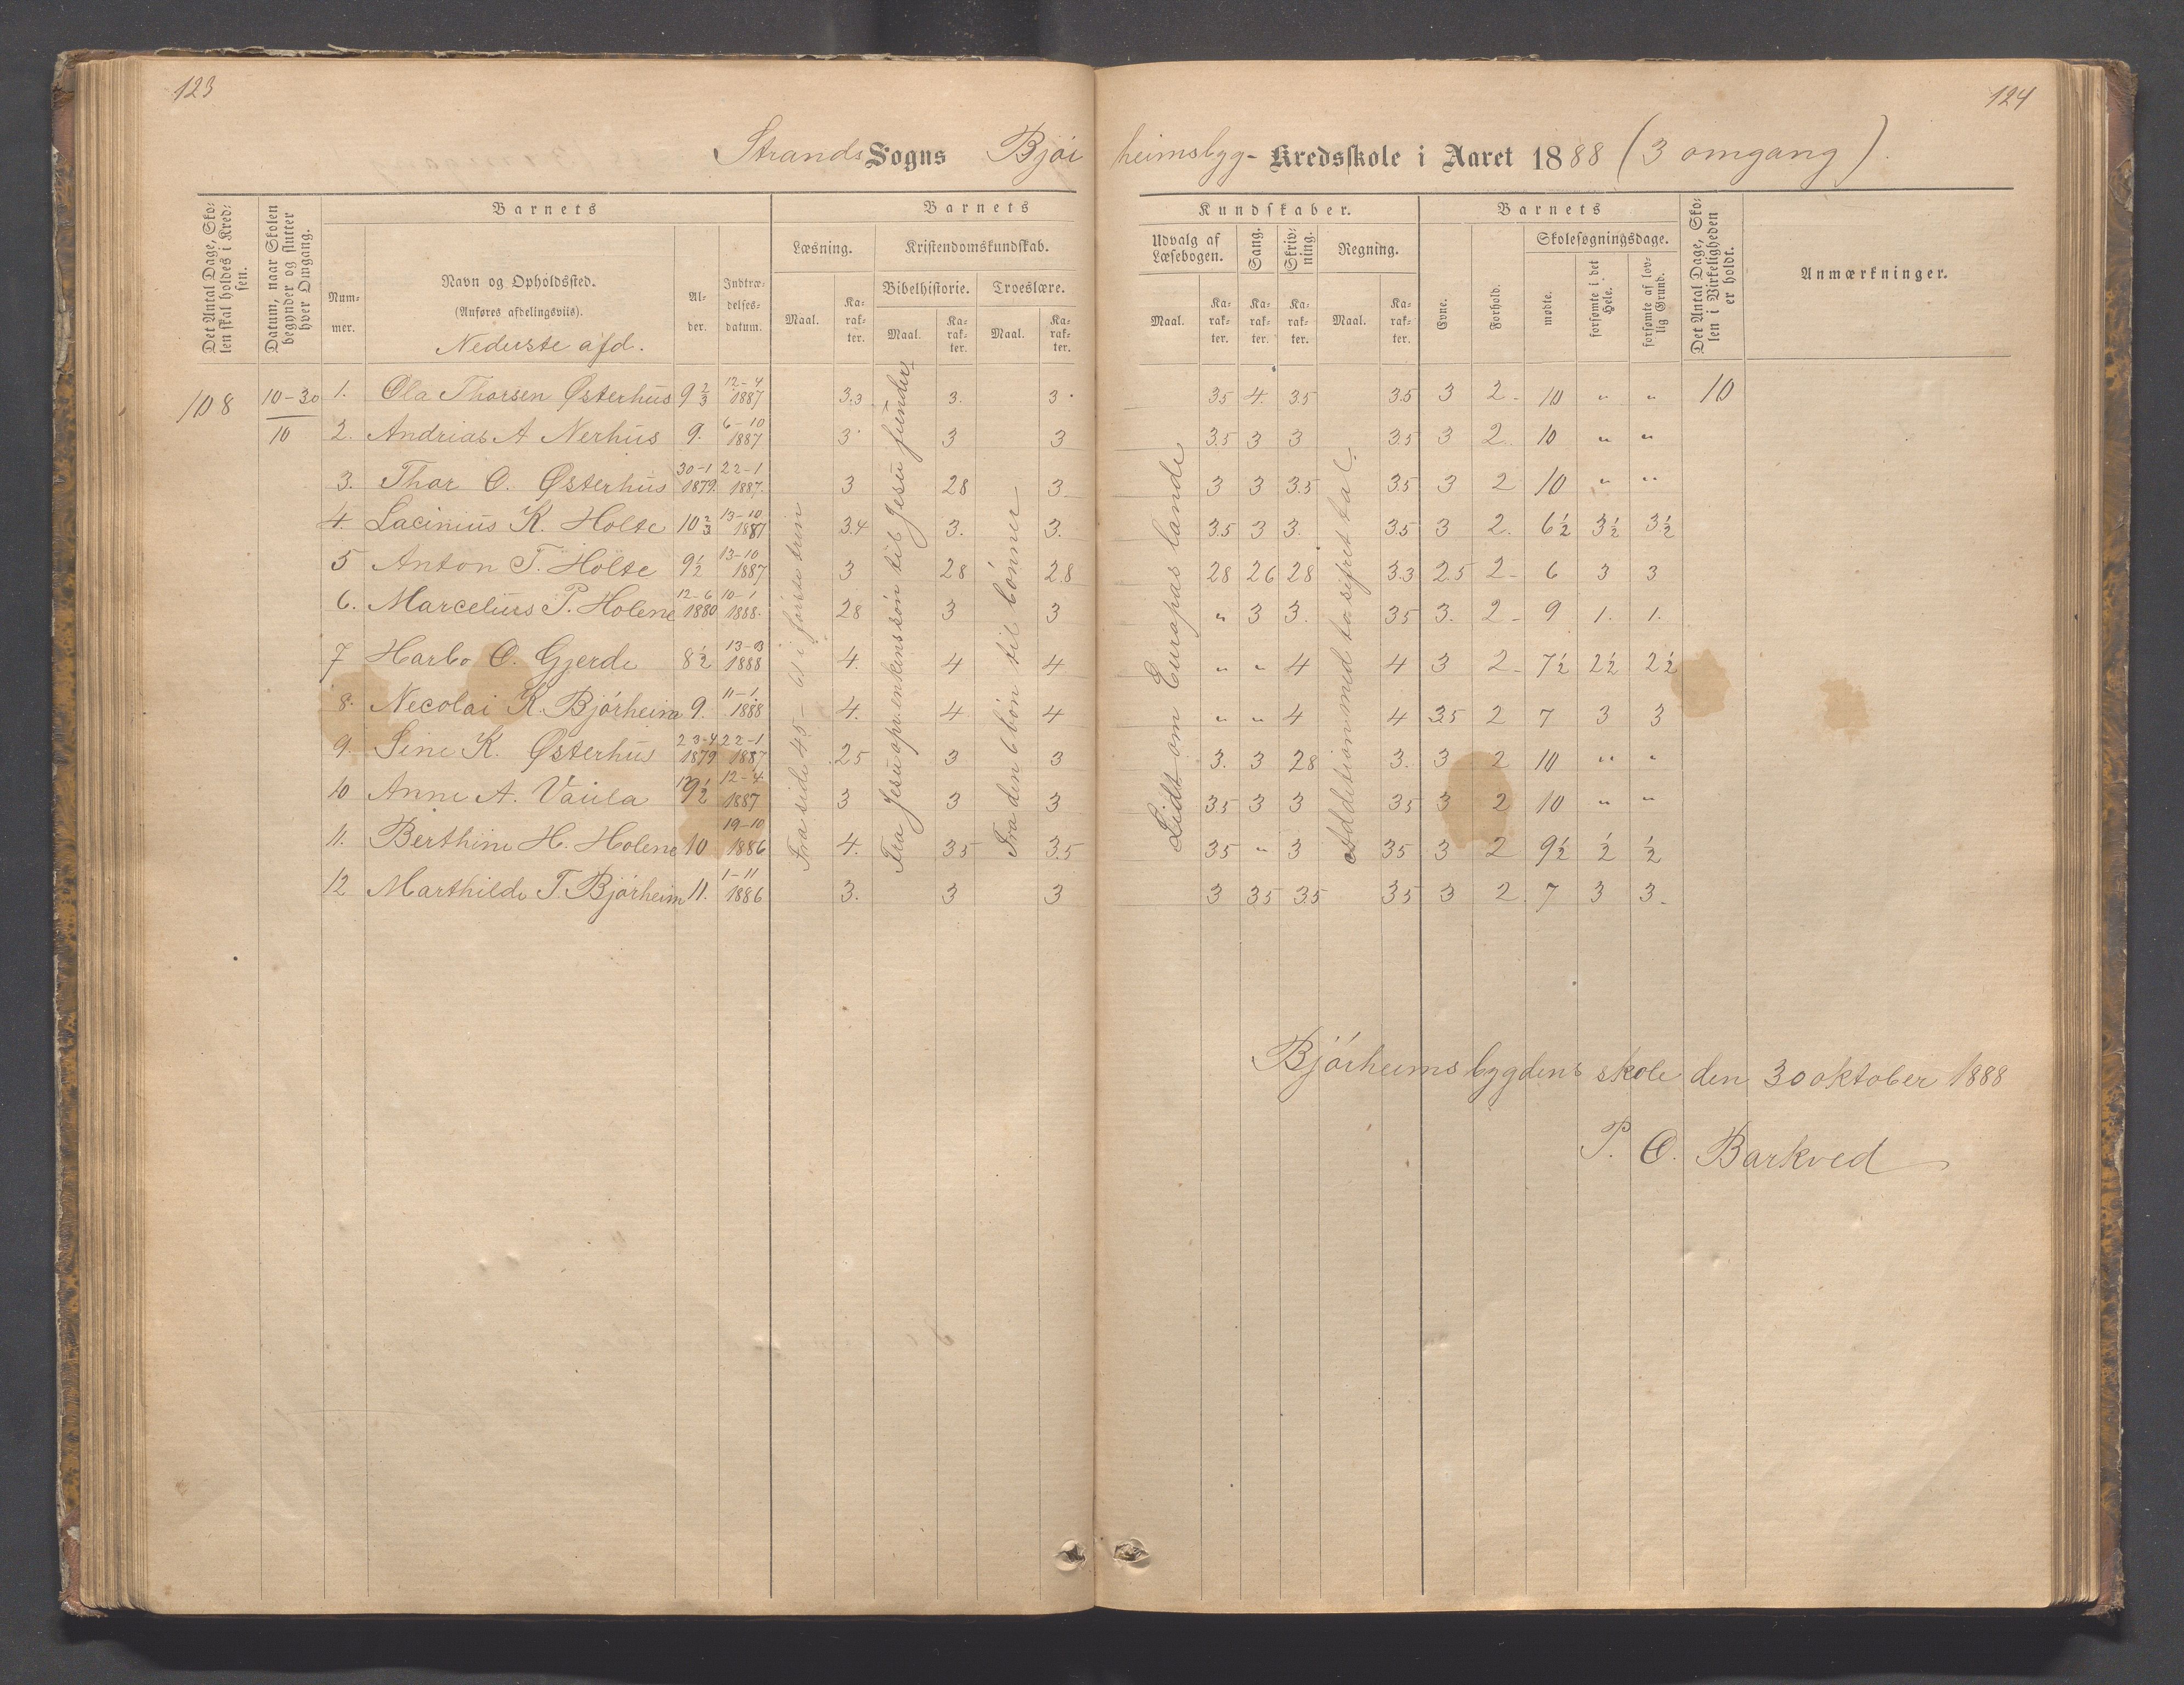 123
124
Strands Sogns Bjør heimsbyg- Kredsskole i Aaret 1888 (3 omgang).
Det Antal Dage, Skolen skal holdes i Kredsen.
Datum, naar Skolen begynder og slutter hver Omgang.
Barnets
Nummer.
Navn og Opholdssted.
(Anføres afdelingsvis).
Nederste afd.
Alder.
Indtrædelsesdatum.
Barnets Kundskaber.
Læsning.
Maal. Karakter.
Kristendomskundskab.
Bibelhistorie. Troeslære.
Maal. Karakter. Maal. Karakter.
Udvalg af Læsebogen.
Maal. Karakter.
Sang. Karakter.
Skrivning. Karakter.
Regning.
Maal. Karakter.
Barnets
Evne. Forhold.
Skolesøgningsdage.
mødte. forsømte i det Hele. forsømte af lovlig Grund.
Det Antal Dage, Skolen i Virkeligheden er holdt.
Anmærkninger.
108 10-30/10 1. Ola Thorsen Østerhus 9 2/3 12-4 1887 3.3 3. 3. 3.5 4. 3.5 3.5 3 2 10 " " 10
2. Andrias A Nerhus 9. 6-10 1887 3 3 3 3.5 3 3 3.5 3 2. 10 " "
3. Thor O. Østerhus 30-1 1879. 22-1 1887. 3 28 3 3 3 3.5 3.5 3 2 10 " "
4. Lacinius K. Holte 10 2/3 13-10 1887 3.4 3. 3. 3.5 3 3. 3.5 3 2. 6 1/2 3 1/2 3 1/2
5 Anton T. Holte 9 1/2 13-10 1887 3 28 2.8 28 26 28 3.3 2.5 2 6 3 3
6. Marcelius P. Holene 12-6 1880 10-1 1888. 28 3 3 " 3 3. 3.5 3. 2 9 1. 1.
7 Harbo O. Gjerde 8 1/2 13-3 1888 4. 4 4 " " 4 4 3 2 7 1/2 2 1/2 2 1/2
8. Necolai K. Bjørheim 9. 11-1 1888 4. 4 4 " " 4 4 3.5 2 7 3 3
9. Sine K. Østerhus 23-4 1879 22-1 1887 2.5 3 3 3. 3 28 3. 3 2 10 " "
10 Anne A. Vaula 9 1/2 12-4 1887 3 3 3 3.5 3 3 3.5 3 2 10 " "
11. Berthine H. Holene 10 19-10 1886 4. 3.5 3.5 3.5 " 3 3.5 3 2 9 1/2 1/2 1/2
12 Marthilde T. Bjørheim 11. 1-11 1886 3. 3 3 3 3.5 3.5 3.5 3 2 7 3 3
Fra side 45 - 61 i første trin
Fra Jesu til Jesu fiender
Fra den 6 bøn til bønner
Lidt om Europas lande
Addition med to sifret tal.
Bjørheimsbygdens skole den 30 oktober 1888
P. O. Barkved